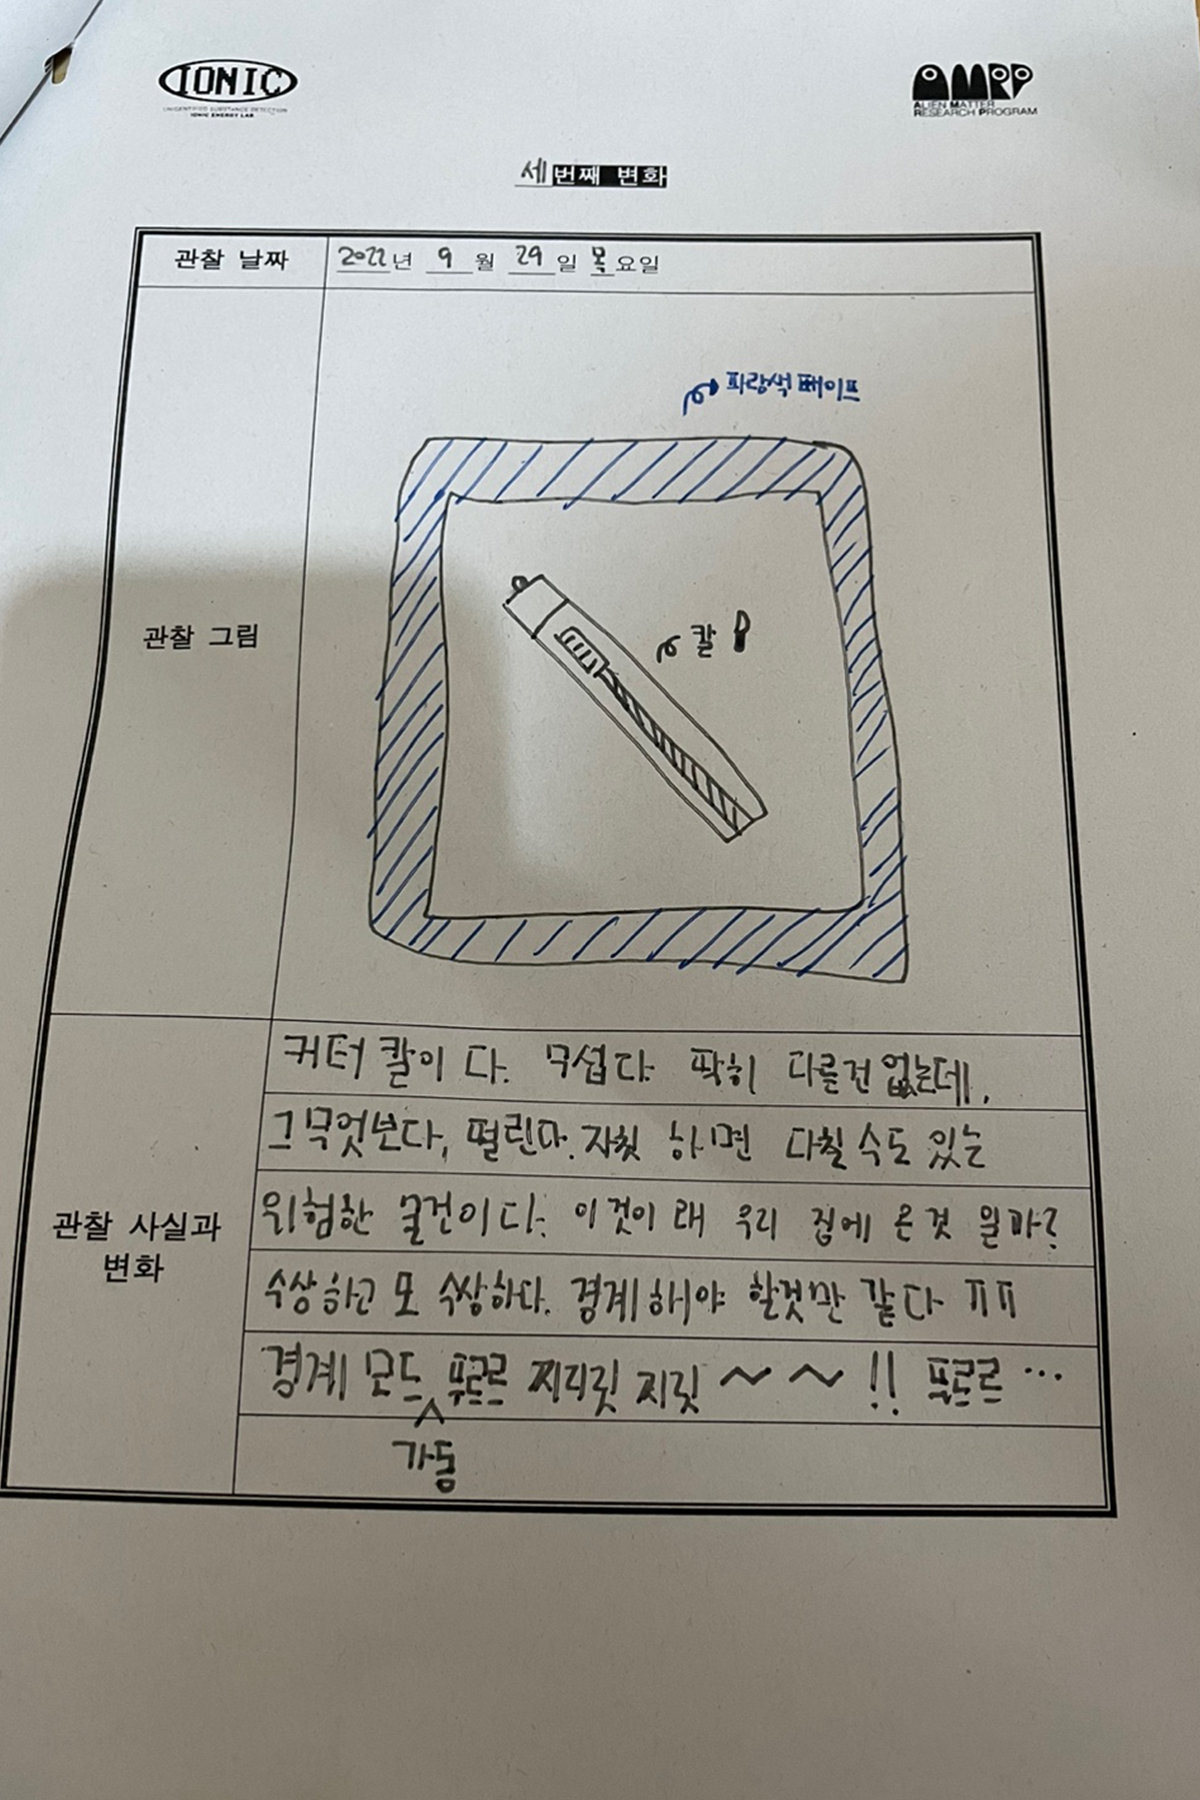 IONIC
UNIDENTIFIED SUBSTANCE DETECTION
IONIC ENERGY LAB
AMRP
ALIEN MATTER
RESEARCH PROGRAM
세번째 변화
관찰 날짜
2022년 9월 29일 목요일
파랑색 테이프
관찰 그림
칼
커터 칼이 다. 무섭다. 딱히 다른건 없는데,
그 무엇보다, 떨린다. 자칫 하면 다칠 수도 있는
관찰 사실과
변화
위험한 물건이다. 이것이 왜 우리 집에 온 것 일까?
수상하고 또 수상하다. 경계해야 할것만 같다 ㅠㅠ
경계 모드 푸르르 찌리릿 찌릿 ~ ~ !! 푸르르 ...
가동